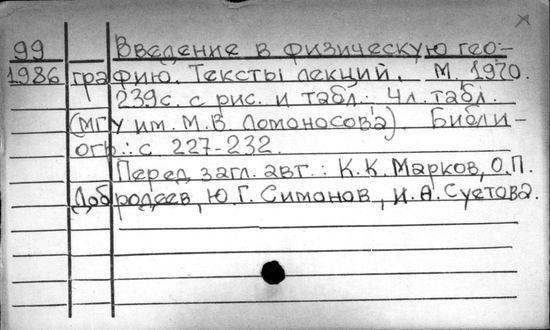 99 Введение в физическую гео-
1986 графию. Тексты лекций. М. 1970.
239с. с рис. и табл.; 4л. табл.
(МГУ им. М.В. Ломоносова). Библи-
огр.: с 227-232.
Перед загл. авт.: К.К. Марков, О.П.
Добродеев, Ю.Г. Симонов, И.А. Суетова.